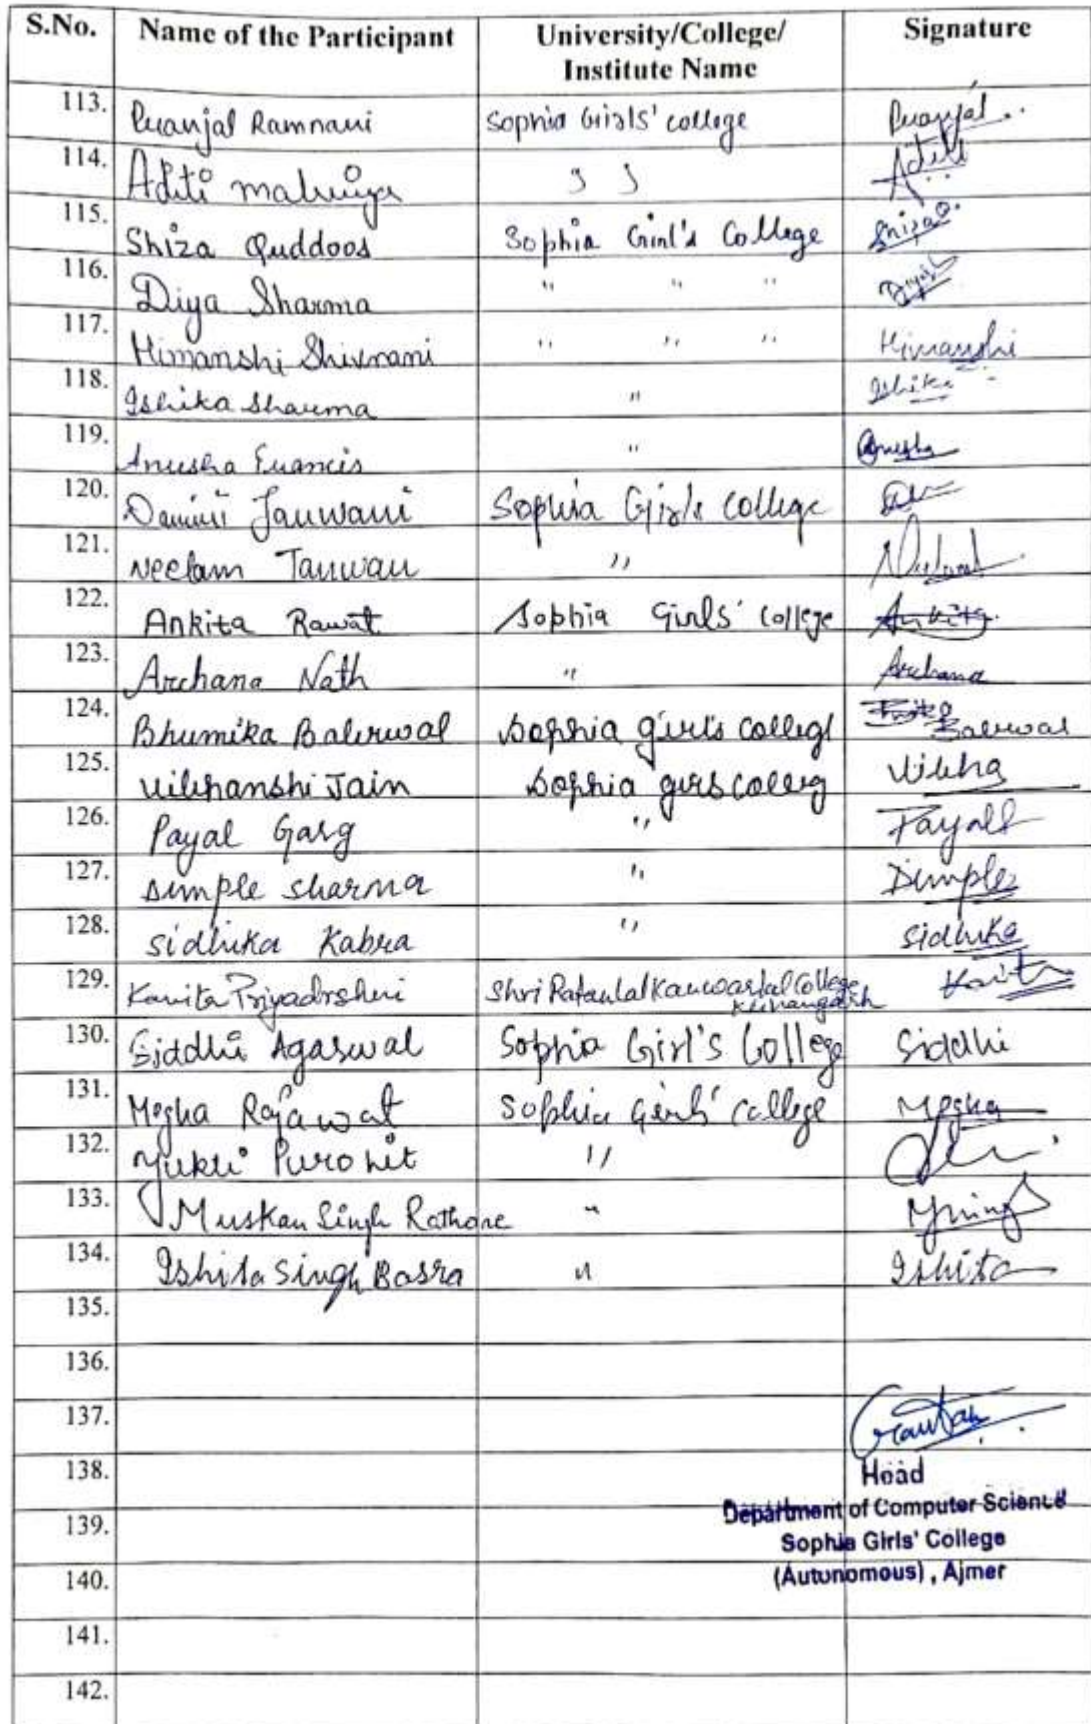 S.No. Name of the Participant University/College/ Institute Name Signature
113. Pranjal Ramnani Sophia Girls' college Pranjal
114. Aditi malviya ,, ,, Aditi
115. Shiza Quddoos Sophia Girl's College Shiza
116. Diya Sharma " " " Diya
117. Himanshi Shivnani " " " Himanshi
118. Ishika Sharma " Ishika
119. Anusha Francis " Anusha
120. Damini Janwani Sophia Girl's College
121. Neelam Tanwar " Neelam
122. Ankita Rawat Sophia Girls' College Ankita
123. Archana Nath " Archana
124. Bhumika Balerwal Sophia girl's college Balerwal
125. Vibhanshi Jain Sophia girls colleg Vibha
126. Payal Garg " Payal
127. Dimple sharma " Dimple
128. Sidhika Kabra " Sidhika
129. Kavita Priyadrsheni Shri Ratanlal Kanwarlal College Kavita
130. Siddhi Agarwal Sophia Girl's College Siddhi
131. Megha Rajawat Sophia Girls' College Megha
132. Yukti Purohit "
133. Muskan Singh Rathore "
134. Ishita Singh Basra " Ishita
135.
136.
137.
138. Head
139. Department of Computer Science
Sophia Girls' College
140. (Autonomous), Ajmer
141.
142.